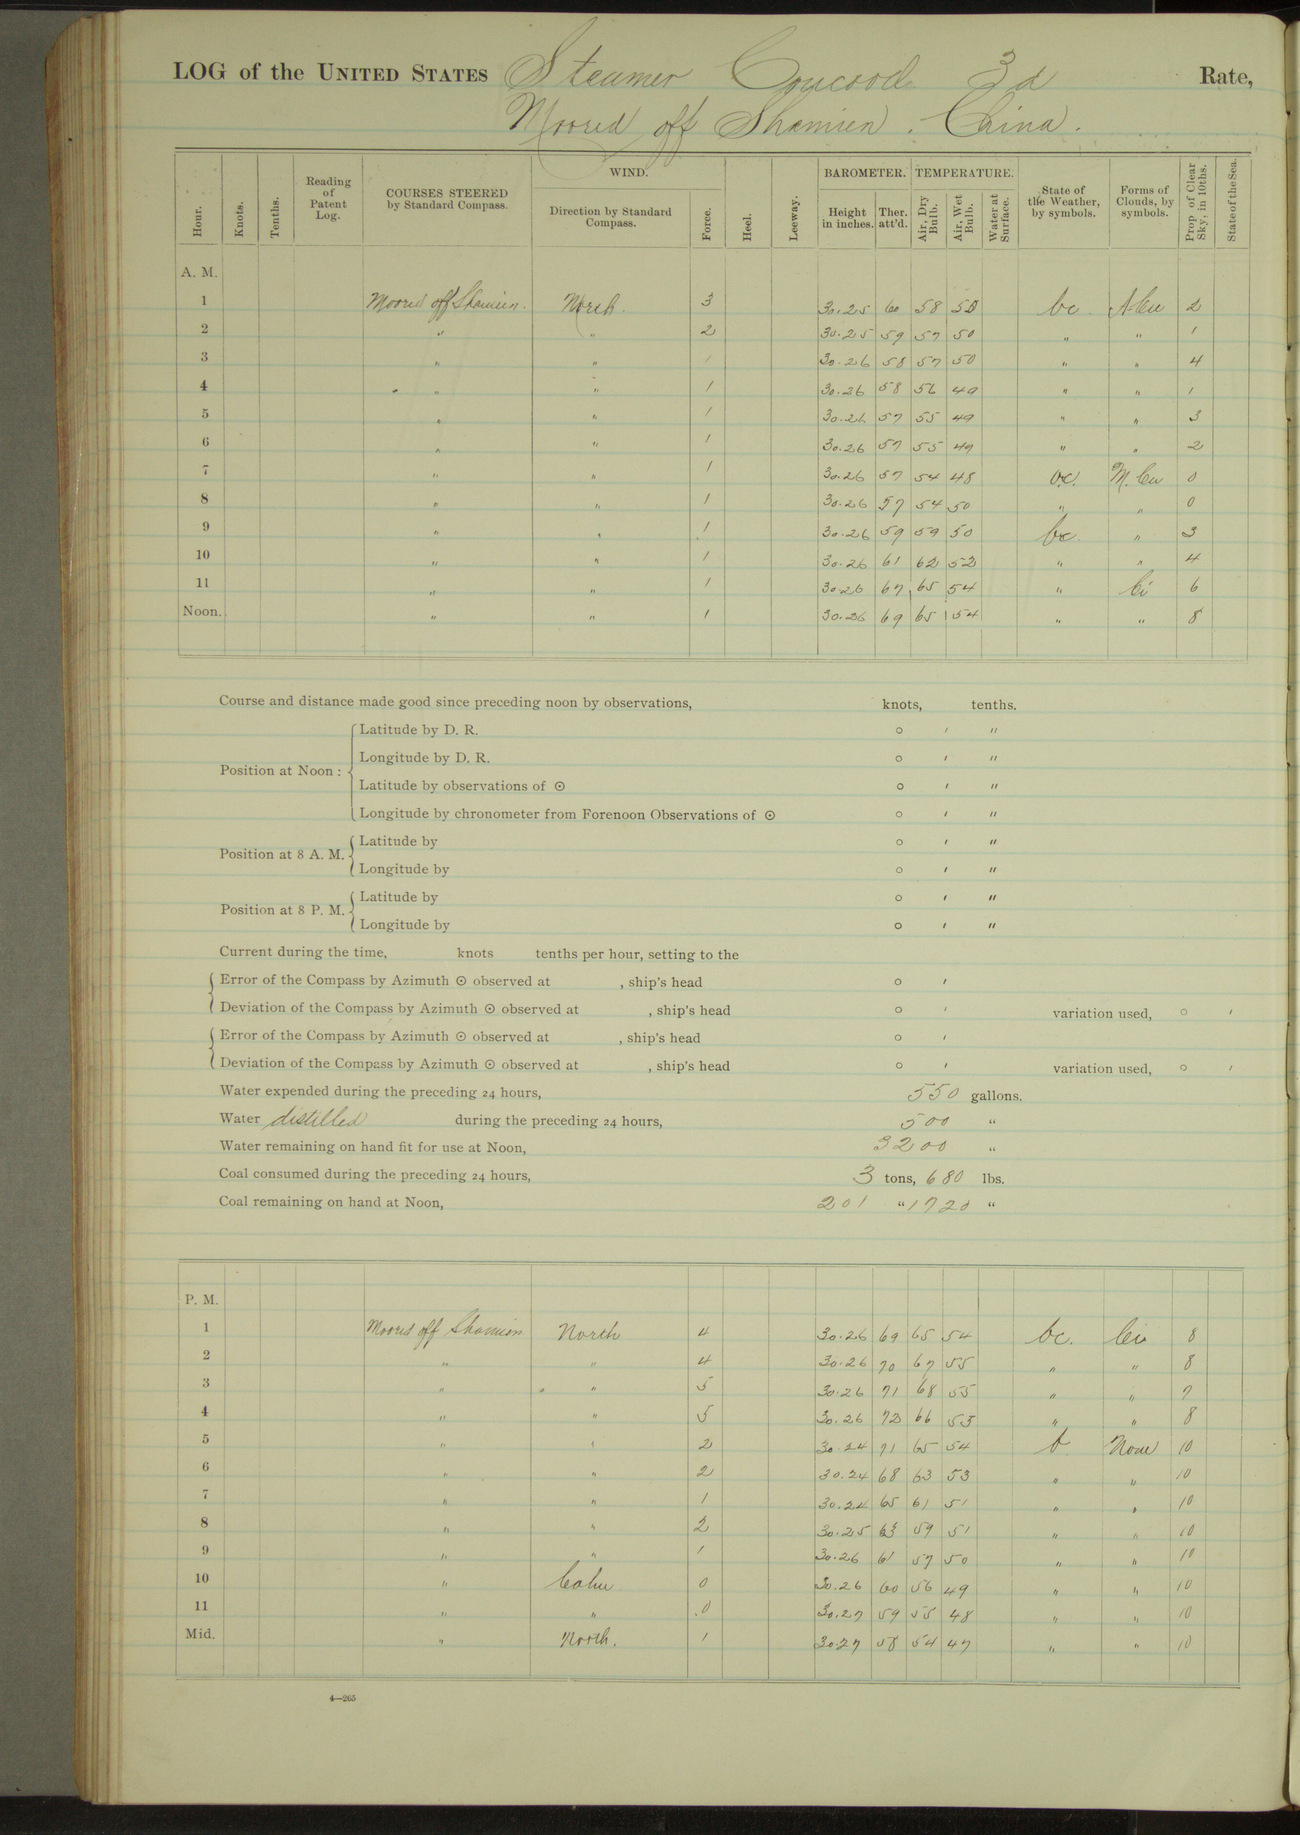 LOG of the UNITED STATES Steamer Concord 3d Rate,
Moored off Shamien. China.
Hour. Knots. Tenths. Reading of Patent Log. COURSES STEERED by Standard Compass. WIND. Direction by Standard Compass. Force. Heel. Leeway. BAROMETER. Height in inches. Ther. att'd. TEMPERATURE. Air, Dry Bulb. Air, Wet Bulb. Water at Surface. State of the Weather, by symbols. Forms of Clouds, by symbols. Prop of Clear Sky, in 10ths. State of the Sea.
A. M.
1 Moored off Shamien. North. 3 30.25 60 58 50 bc. A-Cu 2
2 " " 2 30.25 59 57 50 " " 1
3 " " 1 30.26 58 57 50 " " 4
4 " " 1 30.26 58 56 49 " " 1
5 " " 1 30.26 57 55 49 " " 3
6 " " 1 30.26 57 55 49 " " 2
7 " " 1 30.26 57 54 48 oc. M. Cu 0
8 " " 1 30.26 57 54 50 " " 0
9 " " 1 30.26 59 59 50 bc. " 3
10 " " 1 30.26 61 62 52 " " 4
11 " " 1 30.26 67 65 54 " Ci 6
Noon. " " 1 30.26 69 65 54 " " 8
Course and distance made good since preceding noon by observations, knots, tenths.
Position at Noon:
Latitude by D. R. ° ' "
Longitude by D. R. ° ' "
Latitude by observations of ☉ ° ' "
Longitude by chronometer from Forenoon Observations of ☉ ° ' "
Position at 8 A. M.
Latitude by ° ' "
Longitude by ° ' "
Position at 8 P. M.
Latitude by ° ' "
Longitude by ° ' "
Current during the time, knots tenths per hour, setting to the
Error of the Compass by Azimuth ☉ observed at , ship's head ° '
Deviation of the Compass by Azimuth ☉ observed at , ship's head ° ' variation used, ° '
Error of the Compass by Azimuth ☉ observed at , ship's head ° '
Deviation of the Compass by Azimuth ☉ observed at , ship's head ° ' variation used, ° '
Water expended during the preceding 24 hours, 550 gallons.
Water distilled during the preceding 24 hours, 500 "
Water remaining on hand fit for use at Noon, 3200 "
Coal consumed during the preceding 24 hours, 3 tons, 680 lbs.
Coal remaining on hand at Noon, 201 " 1720 "
P. M.
1 Moored off Shamien North 4 30.26 69 65 54 bc. Ci 8
2 " " 4 30.26 70 67 55 " " 8
3 " " 5 30.26 71 68 55 " " 7
4 " " 5 30.26 72 66 55 " " 8
5 " " 2 30.24 71 65 54 b None 10
6 " " 2 30.24 68 63 53 " " 10
7 " " 1 30.24 65 61 51 " " 10
8 " " 2 30.25 63 59 51 " " 10
9 " " 1 30.26 61 57 50 " " 10
10 " Calm 0 30.26 60 56 49 " " 10
11 " " 0 30.27 59 55 48 " " 10
Mid. " North. 1 30.27 58 54 47 " " 10
4—265